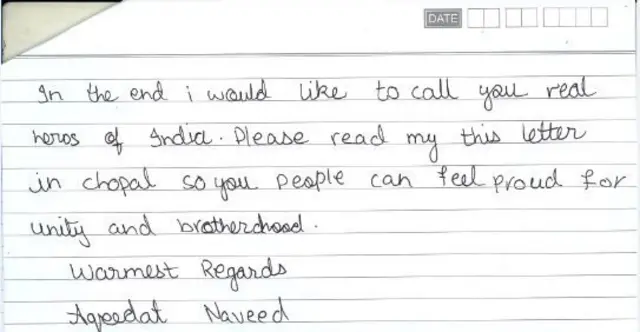 DATE
In the end i would like to call you real
heros of India. Please read my this letter
in chopal so you people can feel proud for
unity and brotherhood.
Warmest Regards
Aqeedat Naveed